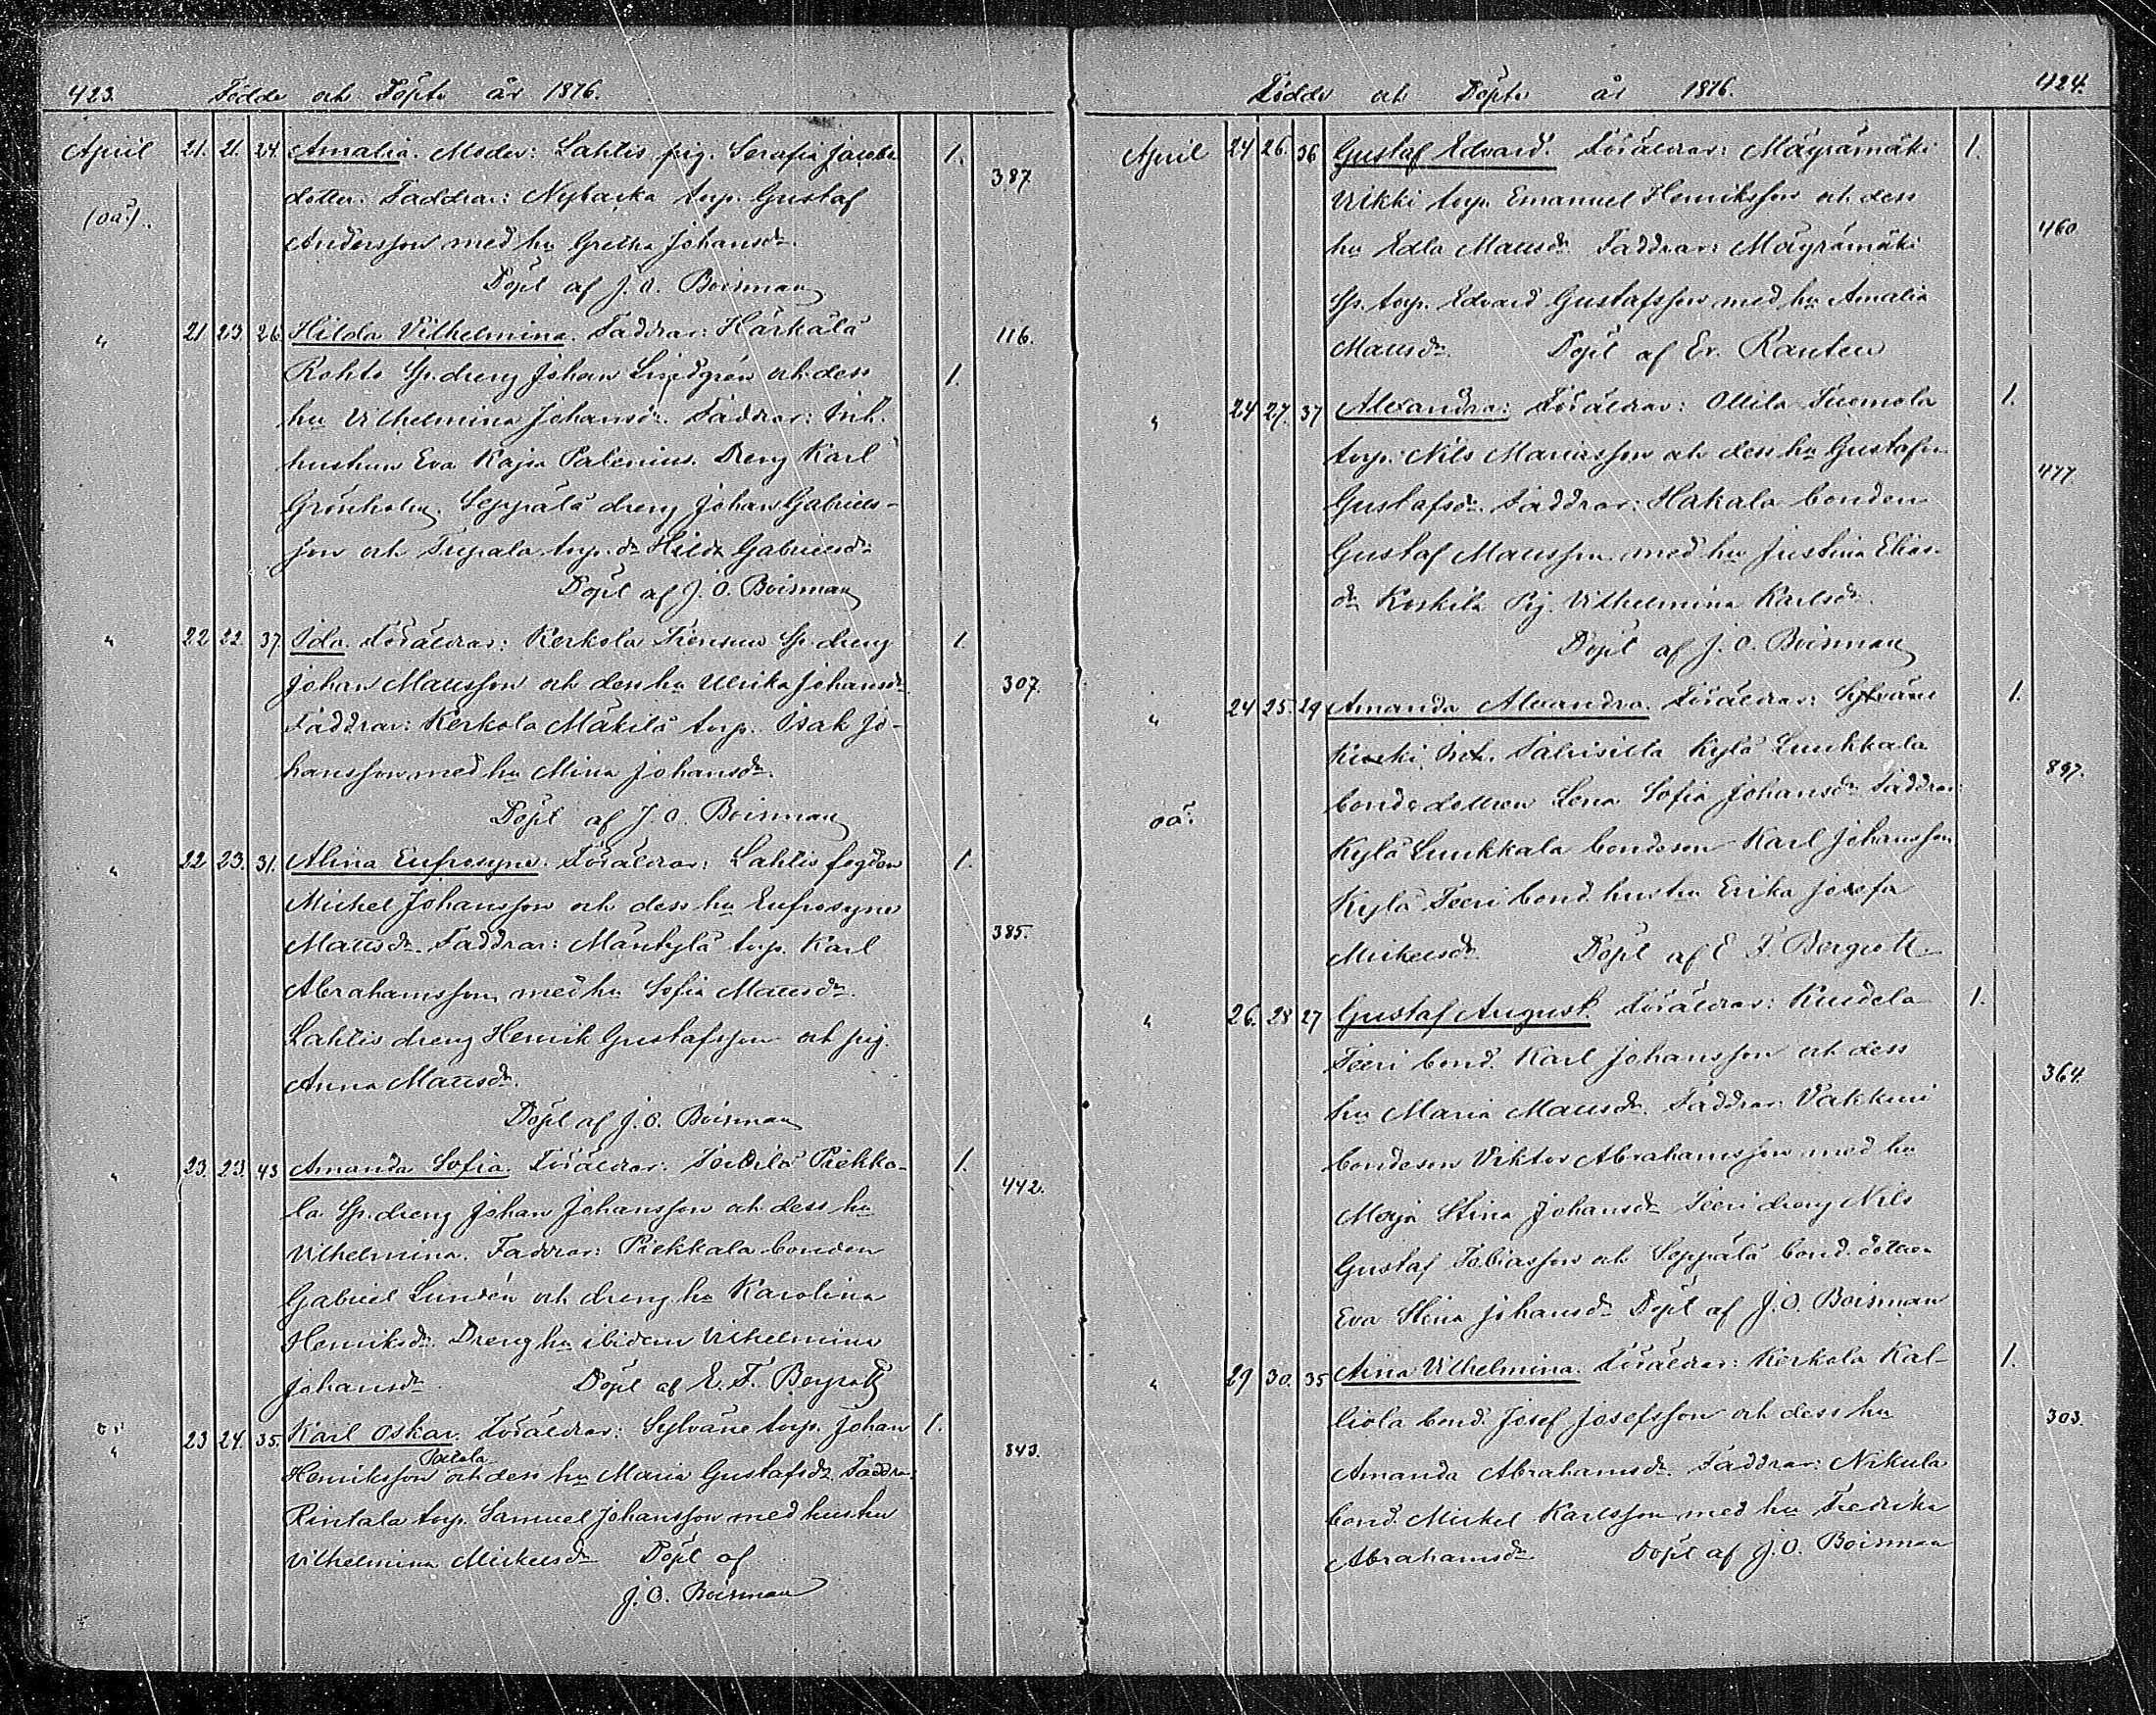 423. Födde och Döpte år 1876.
April 21. 21. 24. Amalia. Moder: Lahtis pig. Serafia Jacobs- 1.
dotter. Faddrar: Nybacka torp. Gustaf 387.
(oä.)
Andersson med hu Gretha Johansdr.
Döpt af J. O. Boisman
" 21 23. 26. Hilda Vilhelmina. Faddrar: Härkälä 116.
Rohto Sp. dreng Johan Lindgrén och dess 1.
hu Vilhelmina Johansdr. Faddrar: Inh.
hushun Eva Kajsa Palenius. Dreng Karl
Grönholm. Seppälä dreng Johan Gabriels-
son och torp. dr Hilda Gabrielsdr
Döpt af J. O. Boisman
" 22 22. 37. Ida. Föräldrar: Kerkola Sp. dreng 1.
Johan Matsson och dess hu Ulrika Johansdr. 307.
Faddrar: Kerkola Mäkilä torp. Isak Jo-
hansson med hu Mina Johansdr.
Döpt af J. O. Boisman
" 22 23. 31. Alina Eufrosyne. Föräldrar: Lahtis fogden 1.
Michel Johansson och dess hu Eufrosyne
Matsdr. Faddrar: Mäntylä torp. Karl 385.
Abrahamsson med hu Sofia Matsdr.
Lahtis dreng Henrik Gustafsson och pig.
Anna Matsdr.
Döpt af J. O. Boisman
" 23. 23. 43 Amanda Sofia. Föräldrar: Piekka- 1.
la Sp. dreng Johan Johansson och dess hu 442.
Vilhelmina. Faddrar: Piekkala bonden
Gabriel Lundén och dreng hu Karolina
Henriksdr. Dreng hu ibidem Vilhelmina
Johansdr. Döpt af E. F. Bergrott
" 23 24. 35. Karl Oskar. Föräldrar: Sylväne torp. Johan 1.
Henriksson och dess hu Maria Gustafsdr. Faddrar: 843.
Rintala torp. Samuel Johansson med hustru
Vilhelmina Mickelsdr Döpt af
J. O. Boisman
Födde och Döpte år 1876. 424.
April 24 26. 36 Gustaf Edvard. Föräldrar: Mäyrämäki 1.
Vikki torp. Emanuel Henriksson och dess
hu Edla Matsdr. Faddrar: Mäyrämäki 460
Sp. torp. Edvard Gustafsson med hu Amalia
Matsdr. Döpt af Er. Rauten
" 24 27. 37 Alexandra: Föräldrar: Ollila Tuomola 1.
torp. Nils Mariasson och dess hu Gustafva
Gustafsdr. Faddrar: Hakala bonden 477.
Gustaf Matsson med hu Justina Elias-
dr Koskila Pig. Vilhelmina Karlsdr.
Döpt af J. O. Boisman
" 24 25. 29 Amanda Alexandra. Föräldrar: Sylväne 1.
Inh. Kylä Luukkala 897.
bondedottren Lena Sofia Johansdr Faddrar:
oä.
Kylä Luukkala bondeson Karl Johansson
Kylä Teeri bond. hustru Erika Josefa
Mickelsdr Döpt af E. F. Bergrott
" 26. 28 27 Gustaf August. Föräldrar: 1.
Teeri bond. Karl Johansson och dess 364.
hu Maria Matsdr. Faddrar: Vakkuri
bondeson Viktor Abrahamsson med hu
Maja Stina Johansdr Teeri dreng Nils
Gustaf Tobiasson och Seppälä bond. dottren
Eva Stina Johansdr Döpt af J. O. Boisman
" 29 30. 35 Aina Vilhelmina. Föräldrar: Kerkola Kal- 1.
liola bond. Josef Josefsson och dess hu 303.
Amanda Abrahamsdr. Faddrar: Nikula
bond. Mickel Karlsson med hu Fredrika
Abrahamsdr. Döpt af J. O. Boisman